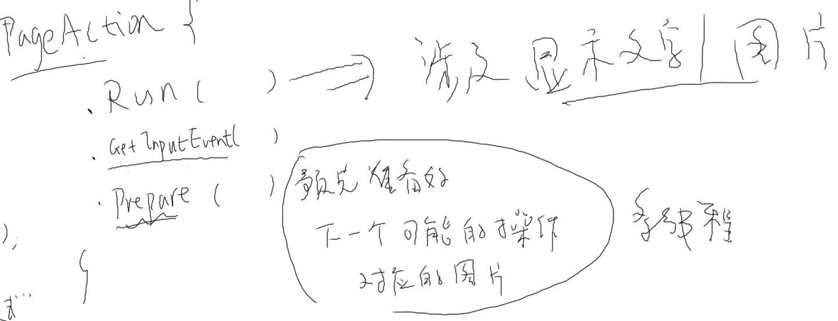 PageAction {
.Run( ) ⇒ 涉及 显示文字|图片
.GetInputEvent( )
.Prepare( ) 预先准备好
下一个可能的操作 多线程
对应的图片
);
}